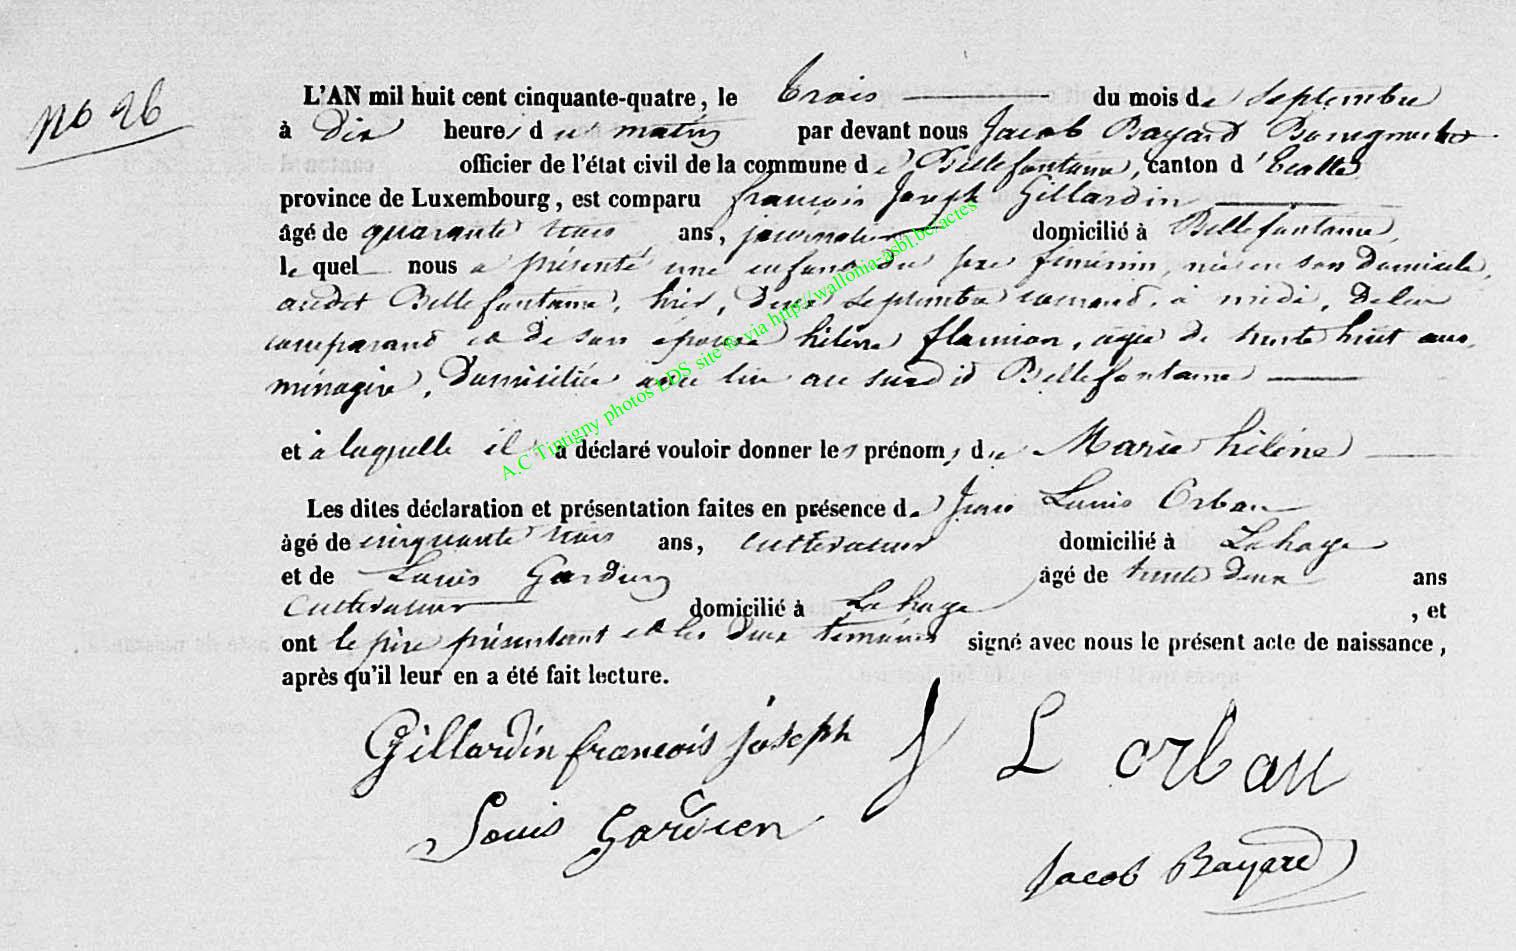 No 26
L'AN mil huit cent cinquante-quatre, le trois du mois de septembre
à dix heures du matin par devant nous Jacob Bayard Bourgmestre
officier de l'état civil de la commune de Bellefontaine, canton d'Etalle
province de Luxembourg, est comparu françois Joseph Gillardin
âgé de quarante trois ans, journalier domicilié à Bellefontaine,
lequel nous a présenté une enfant du sexe féminin, née en son domicile,
audit Bellefontaine, hier, deux septembre courant, à midi, de lui
comparant et de son épouse hélène flamion, agée de trente huit ans,
ménagère, domiciliée avec lui au susdit Bellefontaine
et à laquelle il a déclaré vouloir donner les prénoms de Marie hélène
Les dites déclaration et présentation faites en présence de Jean Louis Orban
âgé de cinquante trois ans, cultivateur domicilié à Lahage
et de Louis Gardien âgé de trente deux ans
cultivateur domicilié à Lahage , et
ont le père présentant et les deux témoins signé avec nous le présent acte de naissance,
après qu'il leur en a été fait lecture.
Gillardin françois joseph J L orban
Louis Gardien
Jacob Bayard
A.C Tintigny photos LDS site © via http://wallonia-asbl.be/actes